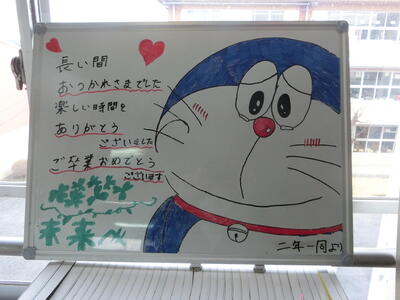 長い間
おつかれさまでした
楽しい時間を
ありがとう
ございました
ご卒業おめでとう
ございます
未来へ
二年一同より